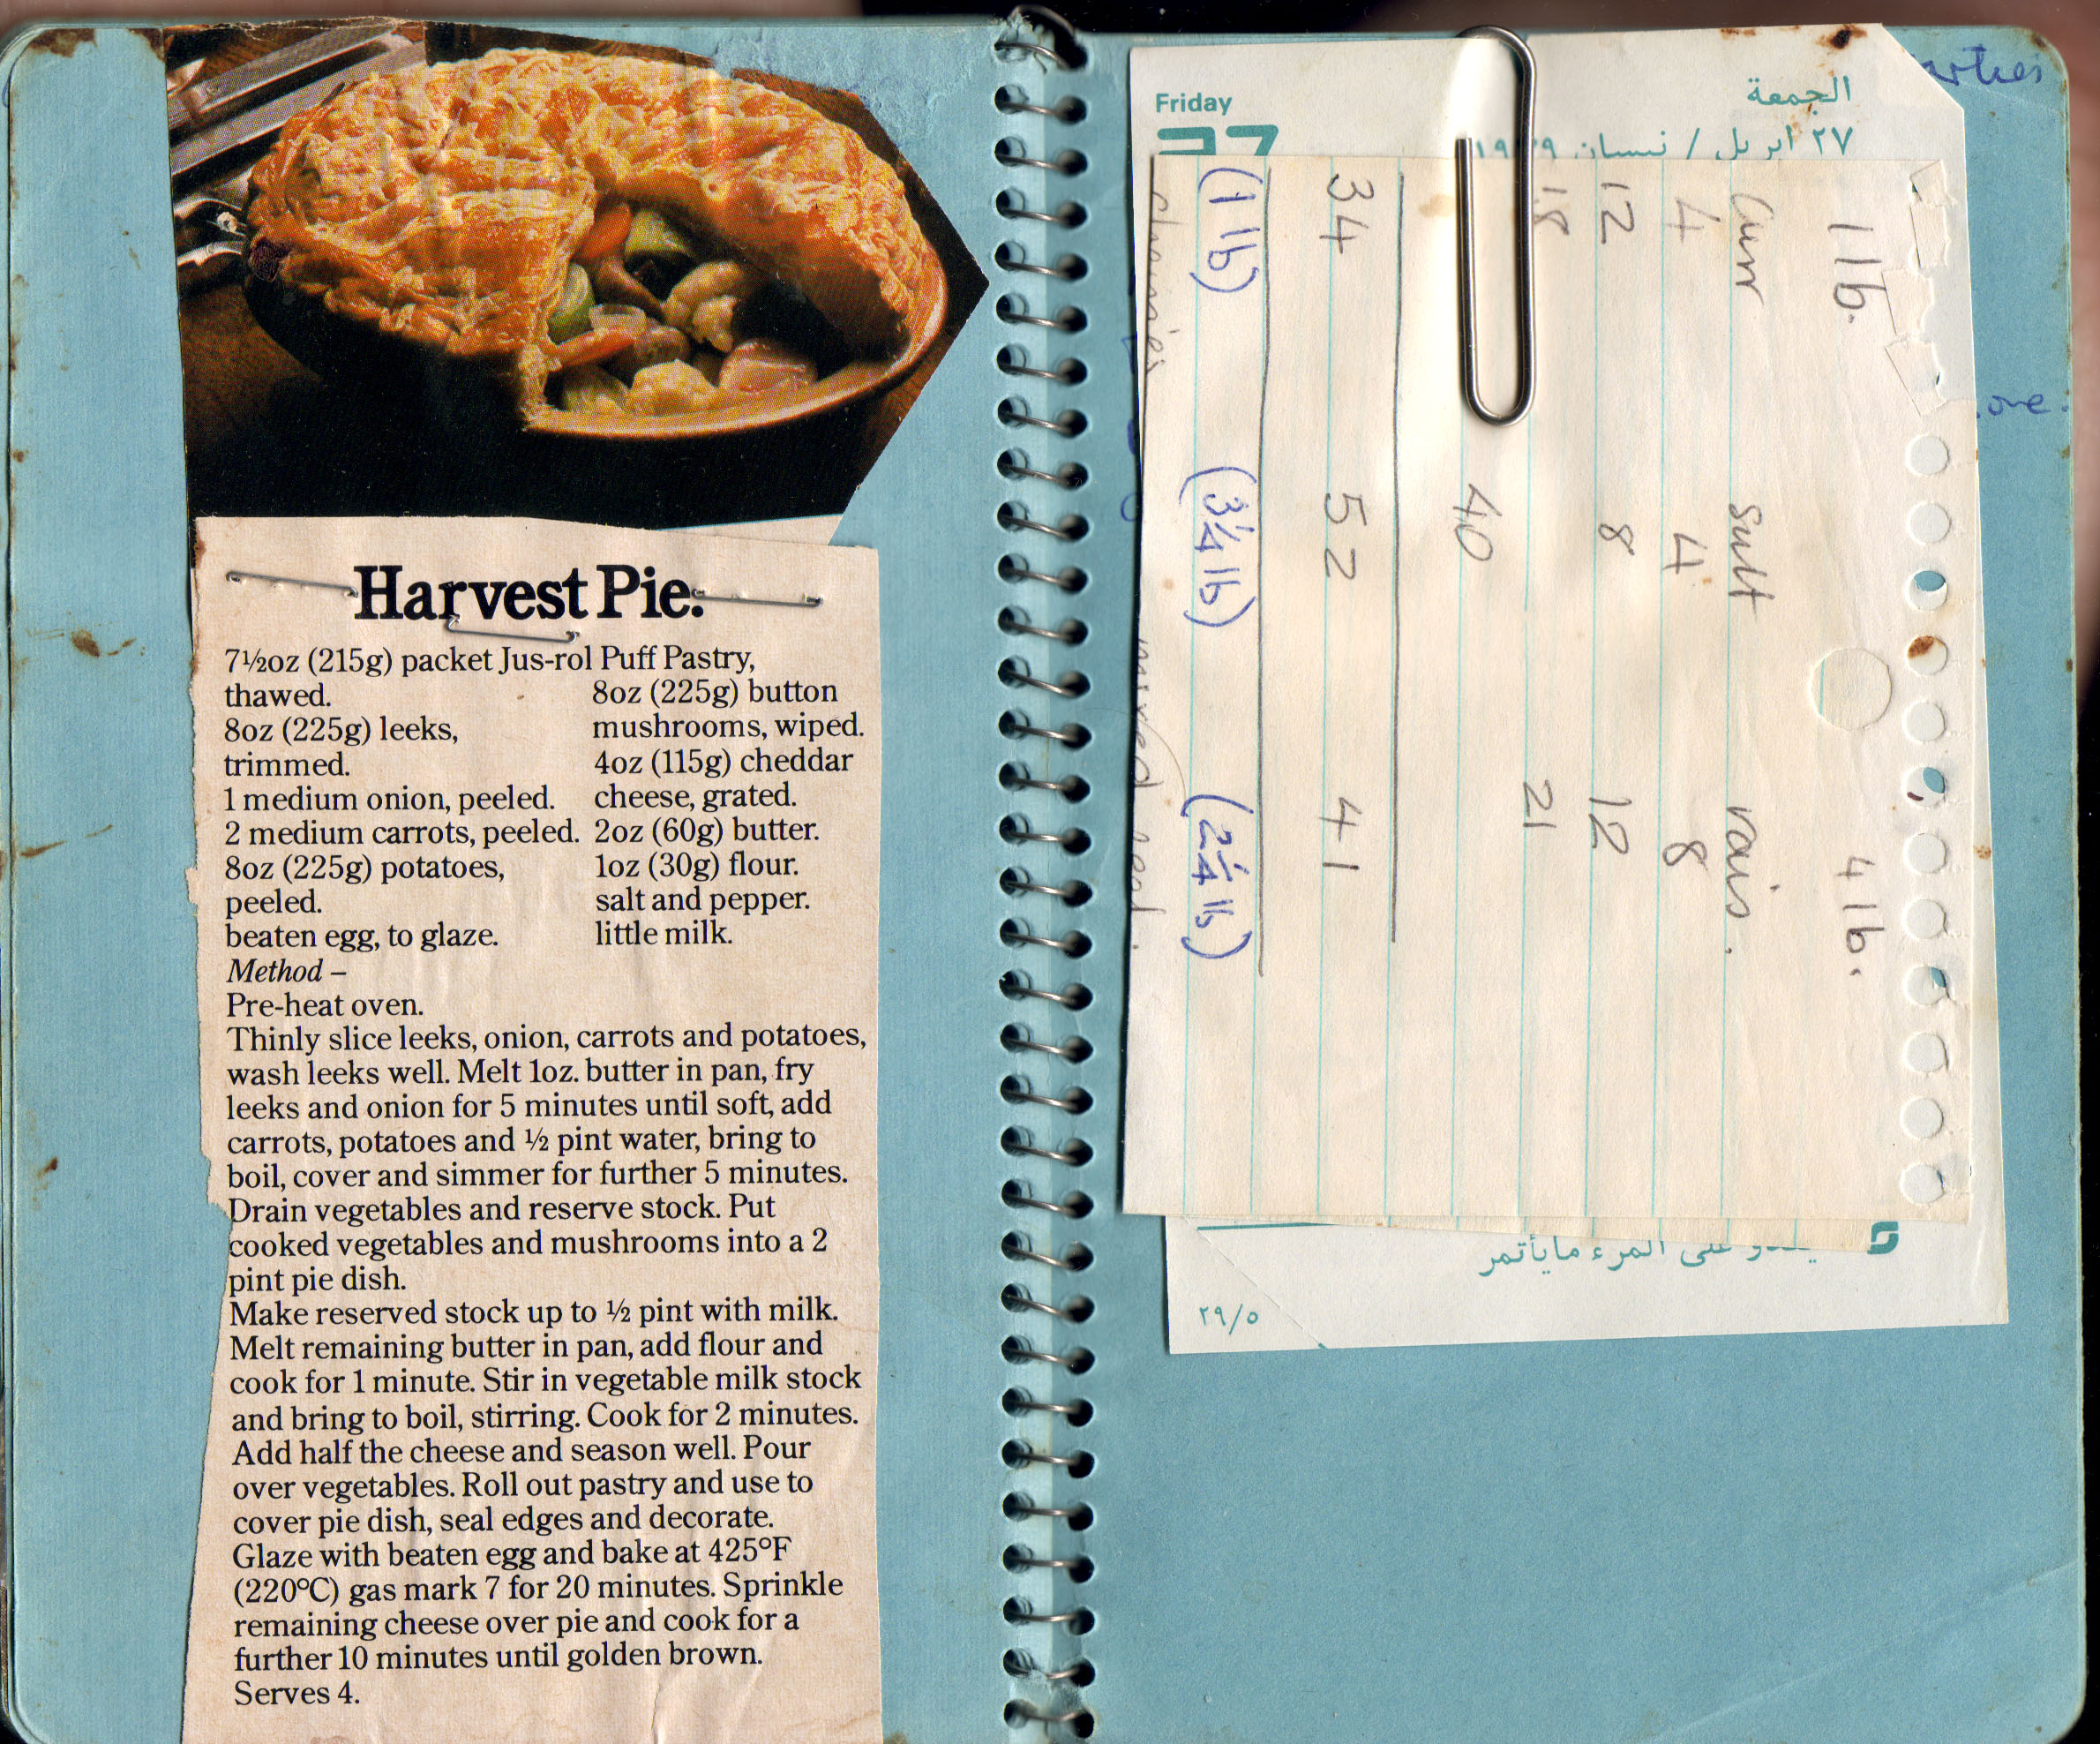 Harvest Pie.
7½oz (215g) packet Jus-rol Puff Pastry,
thawed.
8oz (225g) leeks,
trimmed.
1 medium onion, peeled.
2 medium carrots, peeled.
8oz (225g) potatoes,
peeled.
beaten egg, to glaze.
8oz (225g) button
mushrooms, wiped.
4oz (115g) cheddar
cheese, grated.
2oz (60g) butter.
1oz (30g) flour.
salt and pepper.
little milk.
Method –
Pre-heat oven.
Thinly slice leeks, onion, carrots and potatoes,
wash leeks well. Melt 1oz. butter in pan, fry
leeks and onion for 5 minutes until soft, add
carrots, potatoes and ½ pint water, bring to
boil, cover and simmer for further 5 minutes.
Drain vegetables and reserve stock. Put
cooked vegetables and mushrooms into a 2
pint pie dish.
Make reserved stock up to ½ pint with milk.
Melt remaining butter in pan, add flour and
cook for 1 minute. Stir in vegetable milk stock
and bring to boil, stirring. Cook for 2 minutes.
Add half the cheese and season well. Pour
over vegetables. Roll out pastry and use to
cover pie dish, seal edges and decorate.
Glaze with beaten egg and bake at 425°F
(220°C) gas mark 7 for 20 minutes. Sprinkle
remaining cheese over pie and cook for a
further 10 minutes until golden brown.
Serves 4.
Friday
27
الجمعة
٢٧ ابريل / نيسان
1 lb. 4 lb.
Curr sult rais.
4 4 8
12 8 12
18 21
40
34 52 41
(1 lb) (3¼ lb) (2¼ lb)
cherries mixed peel.
على المرء ما يأتمر
٢٩/٥